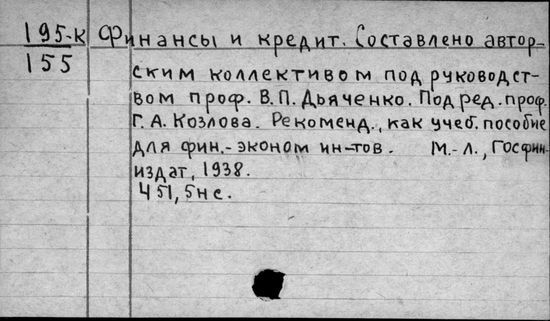 195-к Финансы и кредит. Составлено автор-
155
ским коллективом под руководст-
вом проф. В.П. Дьяченко. Под ред. проф.
Г.А. Козлова. Рекоменд., как учеб. пособие
для фин.-эконом ин-тов. М.-Л., Госфин-
издат, 1938.
451, 5 н с.